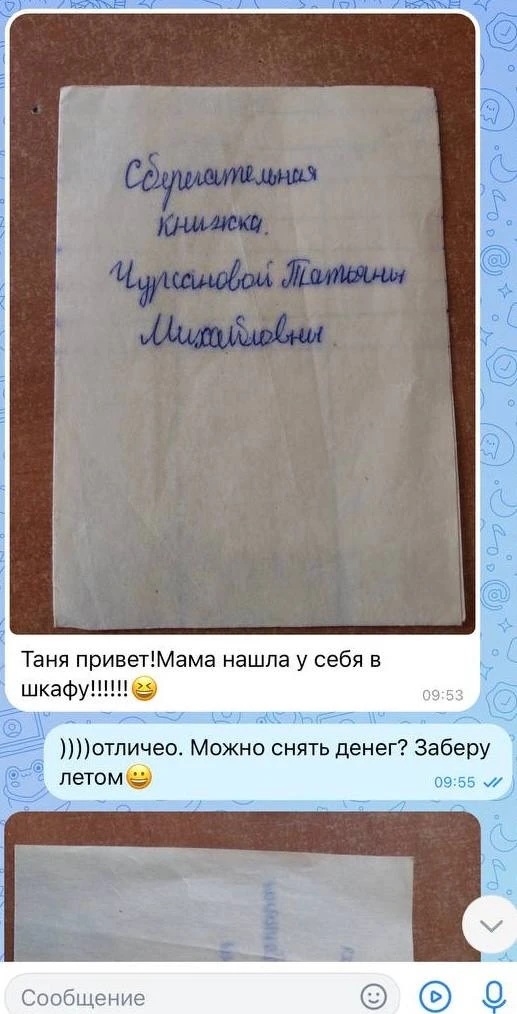 Сберегательная
книжка.
Чурсановой Татьяны
Михайловны.
Таня привет!Мама нашла у себя в
шкафу!!!!!!😆
09:53
))))отличео. Можно снять денег? Заберу
летом😀
09:55
Сообщение